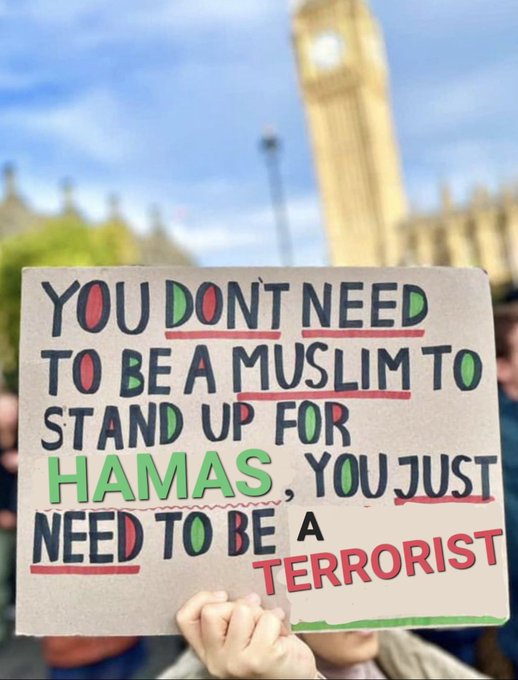 YOU DON'T NEED
TO BE A MUSLIM TO
STAND UP FOR
HAMAS, YOU JUST
NEED TO BE A
TERRORIST